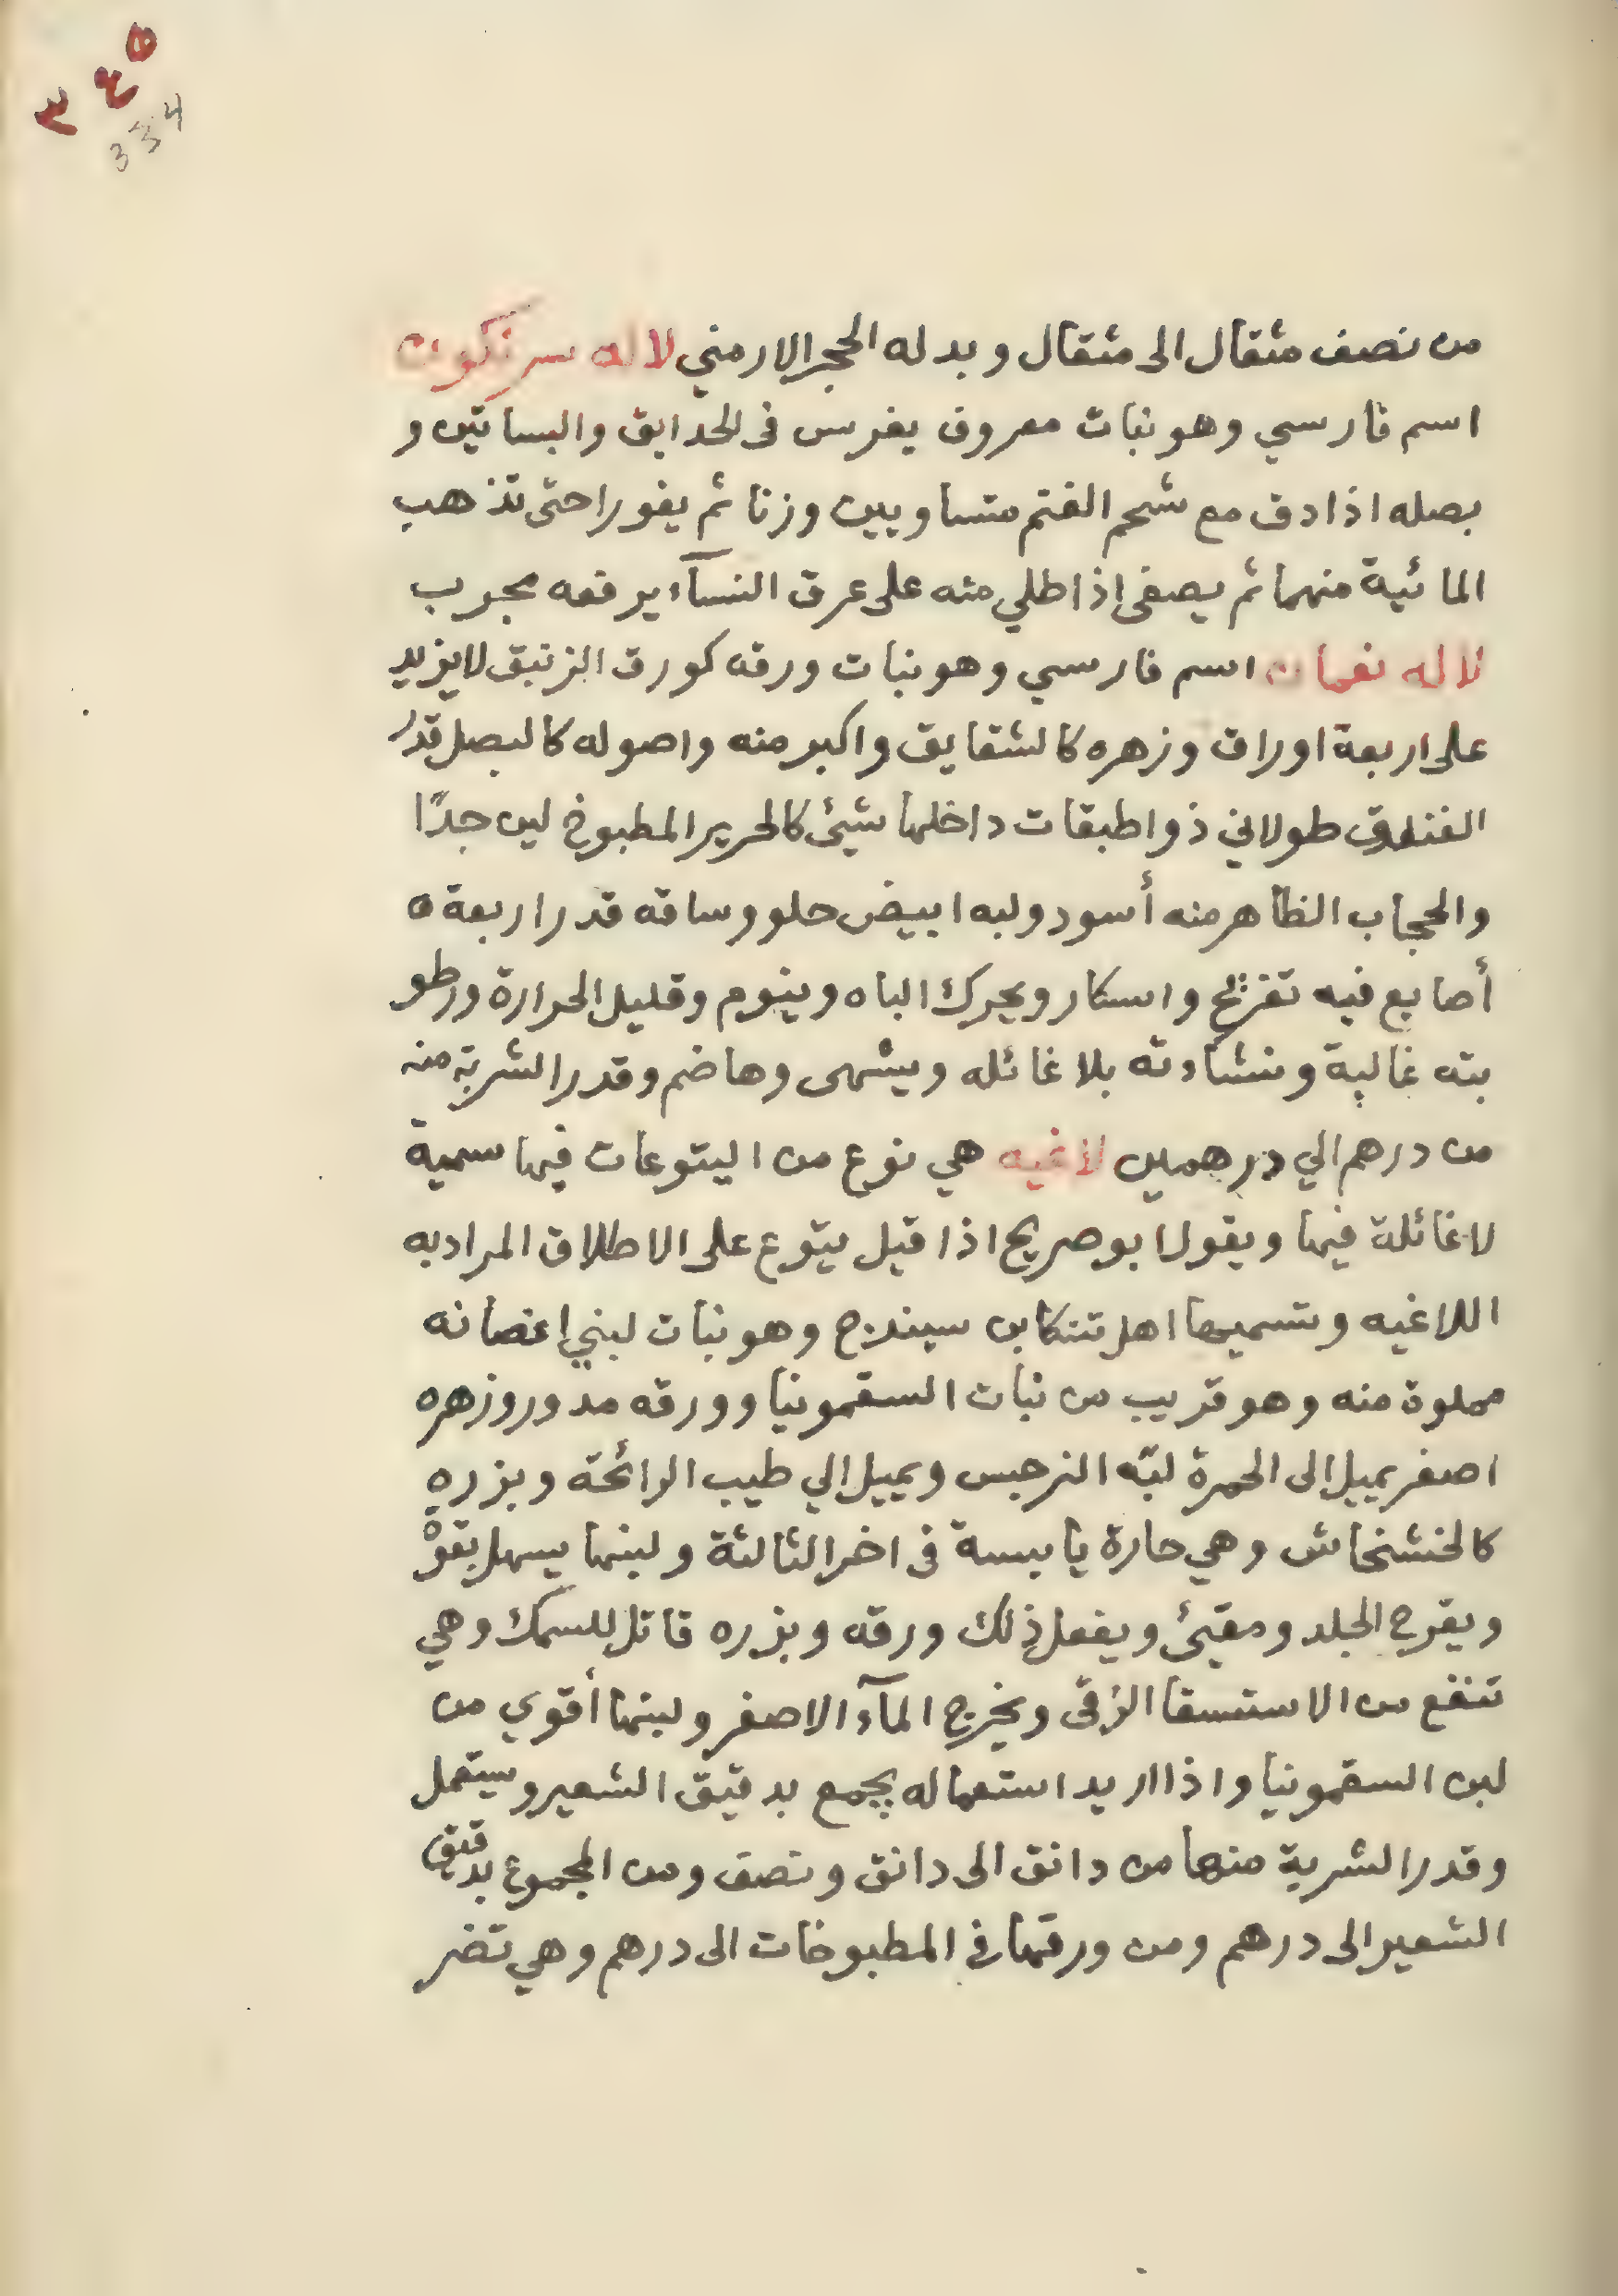 ٣٤٥
334
من نصف مثقال الى مثقال وبدله الحجر الارمني لاله سرنكون
اسم فارسي وهو نبات معروف يغرس فى الحدايق والبساتين و
بصله اذا دق مع شحم الغنم متساويين وزنا ثم يفورا حتى تذهب
المائية منهما ثم يصفى إذا طلي منه على عرق النسآء يرفعه مجرب
لاله نعمان اسم فارسي وهو نبات ورقه كورق الزنبق لا يزيد
على اربعة اوراق وزهره كالشقايق واكبر منه واصوله كالبصل قدر
الفندق طولاني ذو اطبقات داخلها شيئ كالحرير المطبوخ لين جدًا
والحجاب الظاهر منه أسود ولبه ابيض حلو وساقه قدر اربعة ه
أصابع فيه تفريح واسكار ويحرك الباه وينوم وقليل الحرارة ورطو
بته غالبة ونشاوته بلا غائله ويشهى وهاضم وقدر الشربة منه
من درهم الي درهمين لاغيه هي نوع من اليتوعات فيها سمية
لا غائلة فيها ويقول ابو صريح اذا قيل يتوع على الاطلاق المراد به
اللاغيه وتسميها اهل تنكابن سيندرج وهو نبات لبني إغصانه
مملوة منه وهو قريب من نبات السقمونيا وورقه مدور وزهره
اصفر يميل إلى الحمرة لبّه النرجس ويميل إلي طيب الرائحة وبزره
كالخشخاش وهي حارة يابسة فى اخر الثالثة ولبنها يسهل بقوة
ويقرح الجلد ومقيئ ويفعل ذلك ورقه وبزره قاتل للسمك وهي
تنفع من الاستسقا الزقى ويخرج المآء الاصفر ولبنها أقوي من
لبن السقمونيا واذا اريد استعماله يجمع بدقيق الشعير ويستعمل
وقدر الشربة منها من دانق الى دانق ونصف ومن المجموع بدقيق
الشعير الى درهم ومن ورقها في المطبوخات الى درهم وهي تضر